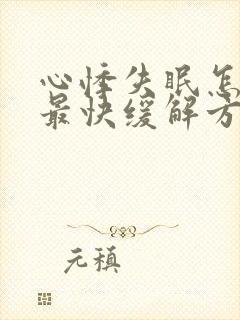 心悸失眠怎
最快缓解方
元稹